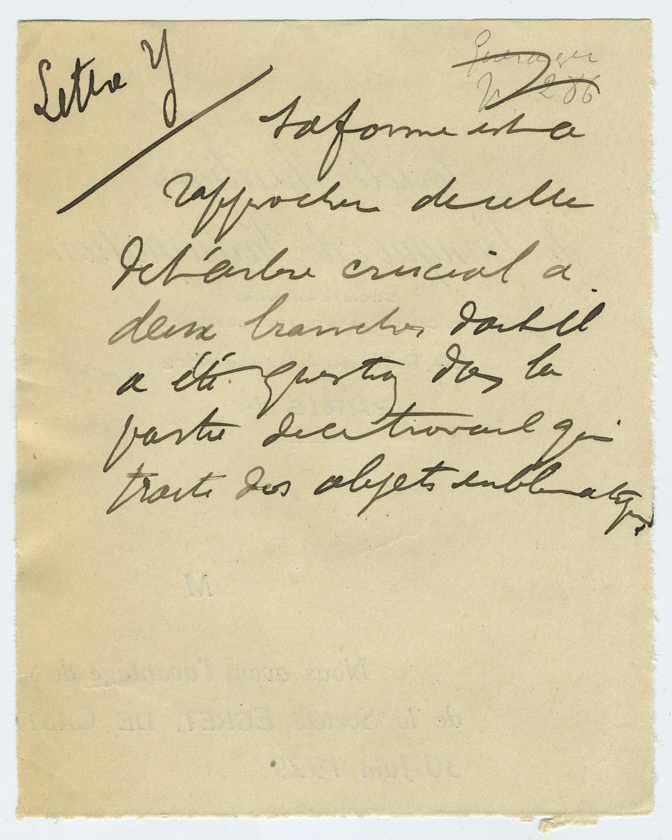 Lettre Y
Sa forme est a
rapprocher de celle
de l'arbre crucial a
deux branches dont il
a été question dans la
partie de ce travail qui
traite des objets emblematiques
M
Nous avons l'avantage de
de la Société EGRET, DE CAST
30 Juin 1929.